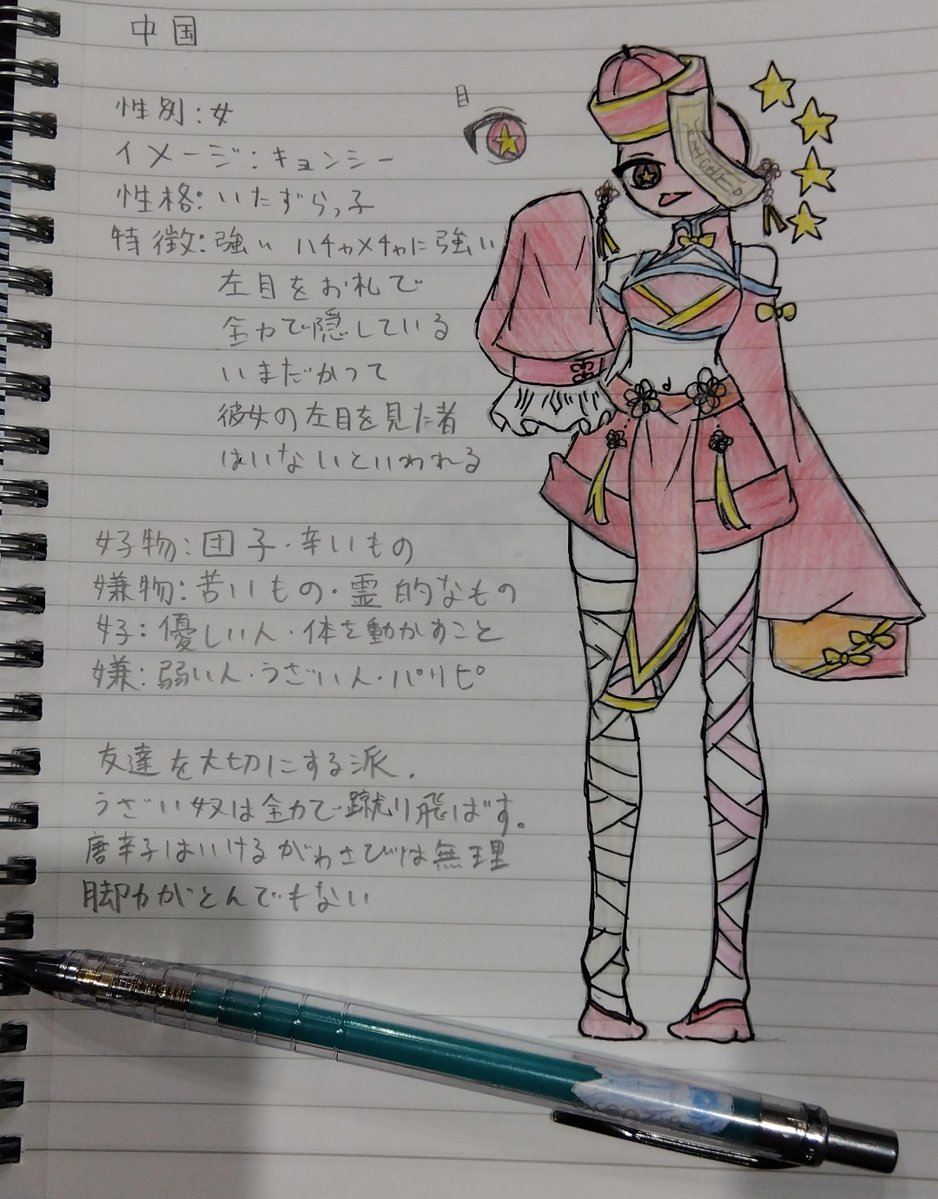 中国
性別:女
イメージ:キョンシー
性格:いたずらっ子
特徴:強い ハチャメチャに強い
左目をお札で
全力で隠している
いまだかって
彼女の左目を見た者
はいないといわれる
好物:団子・辛いもの
嫌物:苦いもの・霊的なもの
好:優しい人・体を動かすこと
嫌:弱い人・うざい人・パリピ
友達を大切にする派.
うざい奴は全力で蹴り飛ばす。
唐辛子はいけるがわさびは無理
脚力がとんでもない
目